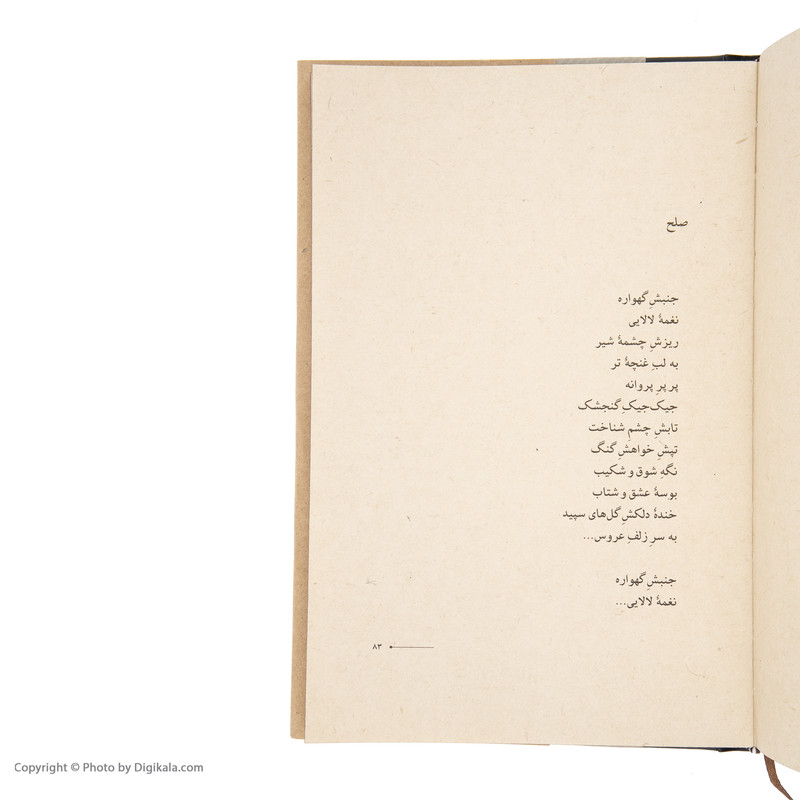 صلح
جنبشِ گهواره
نغمهٔ لالایی
ریزشِ چشمهٔ شیر
به لبِ غنچهٔ تر
پر پرِ پروانه
جیک‌جیکِ گنجشک
تابشِ چشمِ شناخت
تپشِ خواهشِ گنگ
نگهِ شوق و شکیب
بوسهٔ عشق و شتاب
خندهٔ دلکشِ گل‌های سپید
به سرِ زلفِ عروس...
جنبشِ گهواره
نغمهٔ لالایی...
۸۳
Copyright © Photo by Digikala.com